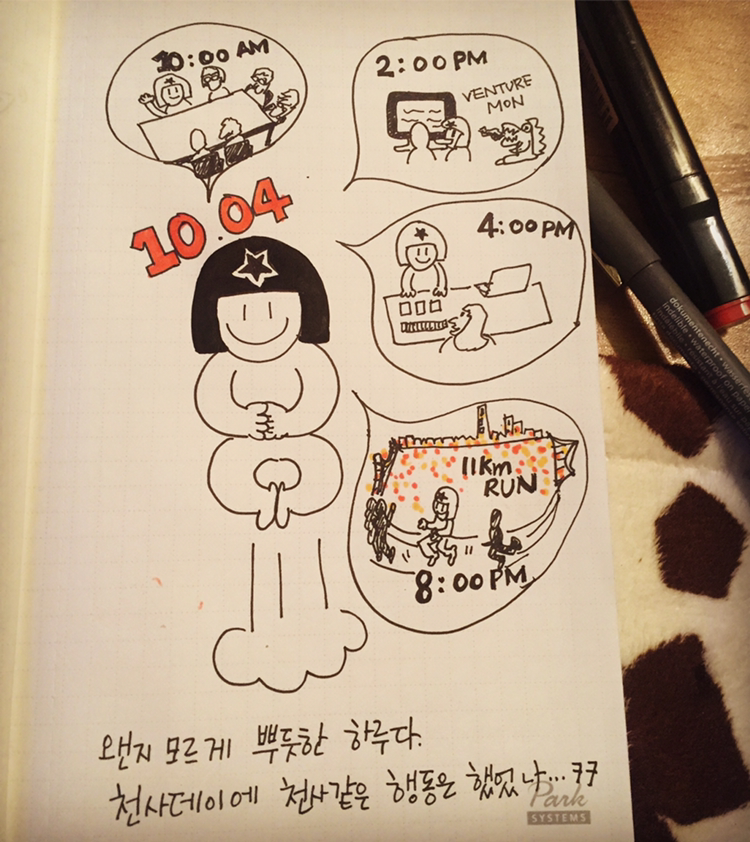 10:00 AM
2:00 PM
VENTURE
MON
10.04
4:00 PM
11km
RUN
8:00 PM
왠지 모르게 뿌듯한 하루다.
천사데이에 천사같은 행동은 했었나... ㅋㅋ
Park
SYSTEMS
dokumentenecht
indelible waterproof on